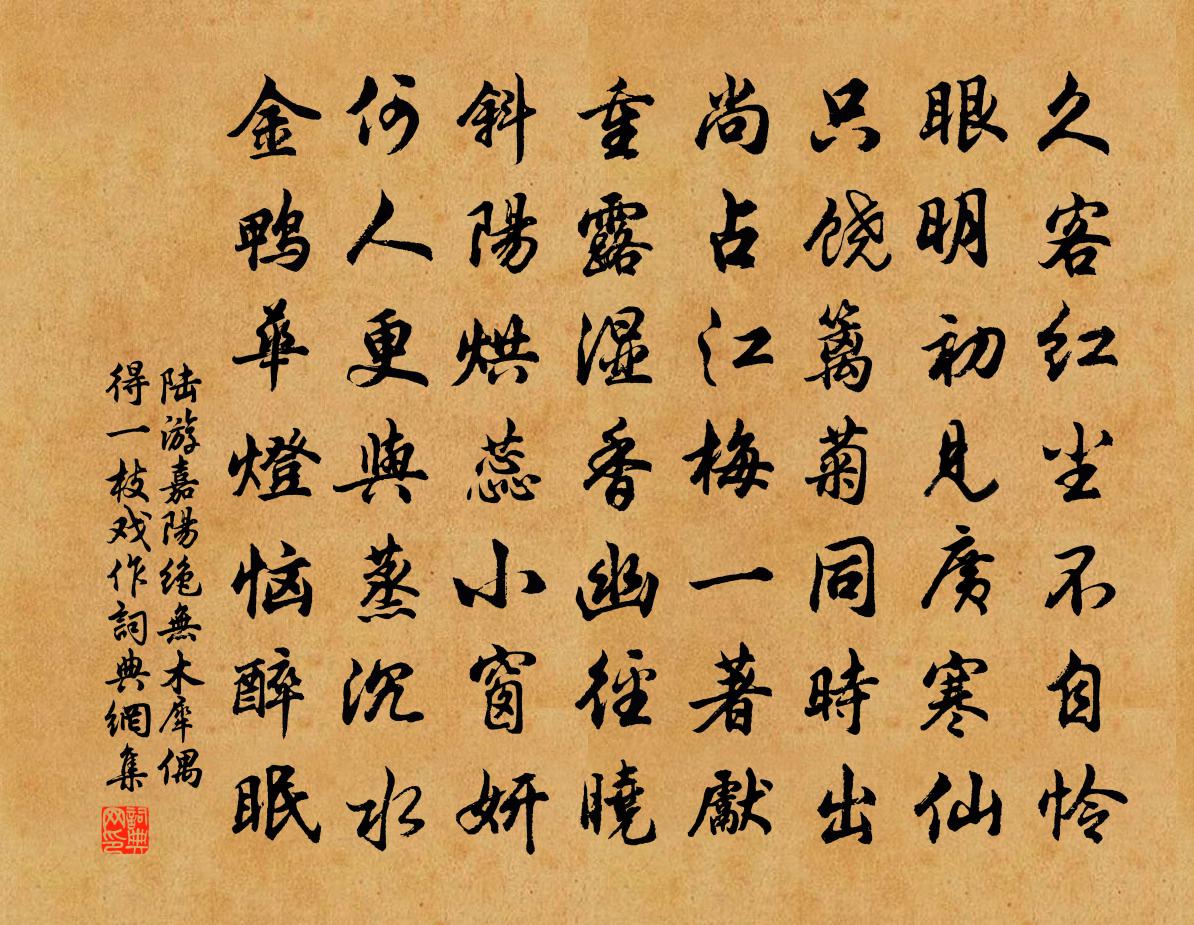 久客红尘不自怜
眼明初见广寒仙
只饶篱菊同时出
尚占江梅一著献
重露湿香幽径晓
斜陽烘蕊小窗妍
何人更與蒸沉水
金鸭華燈恼醉眠
陆游嘉陽绝無木犀偶
得一枝戏作詞典網集
詞典
网印